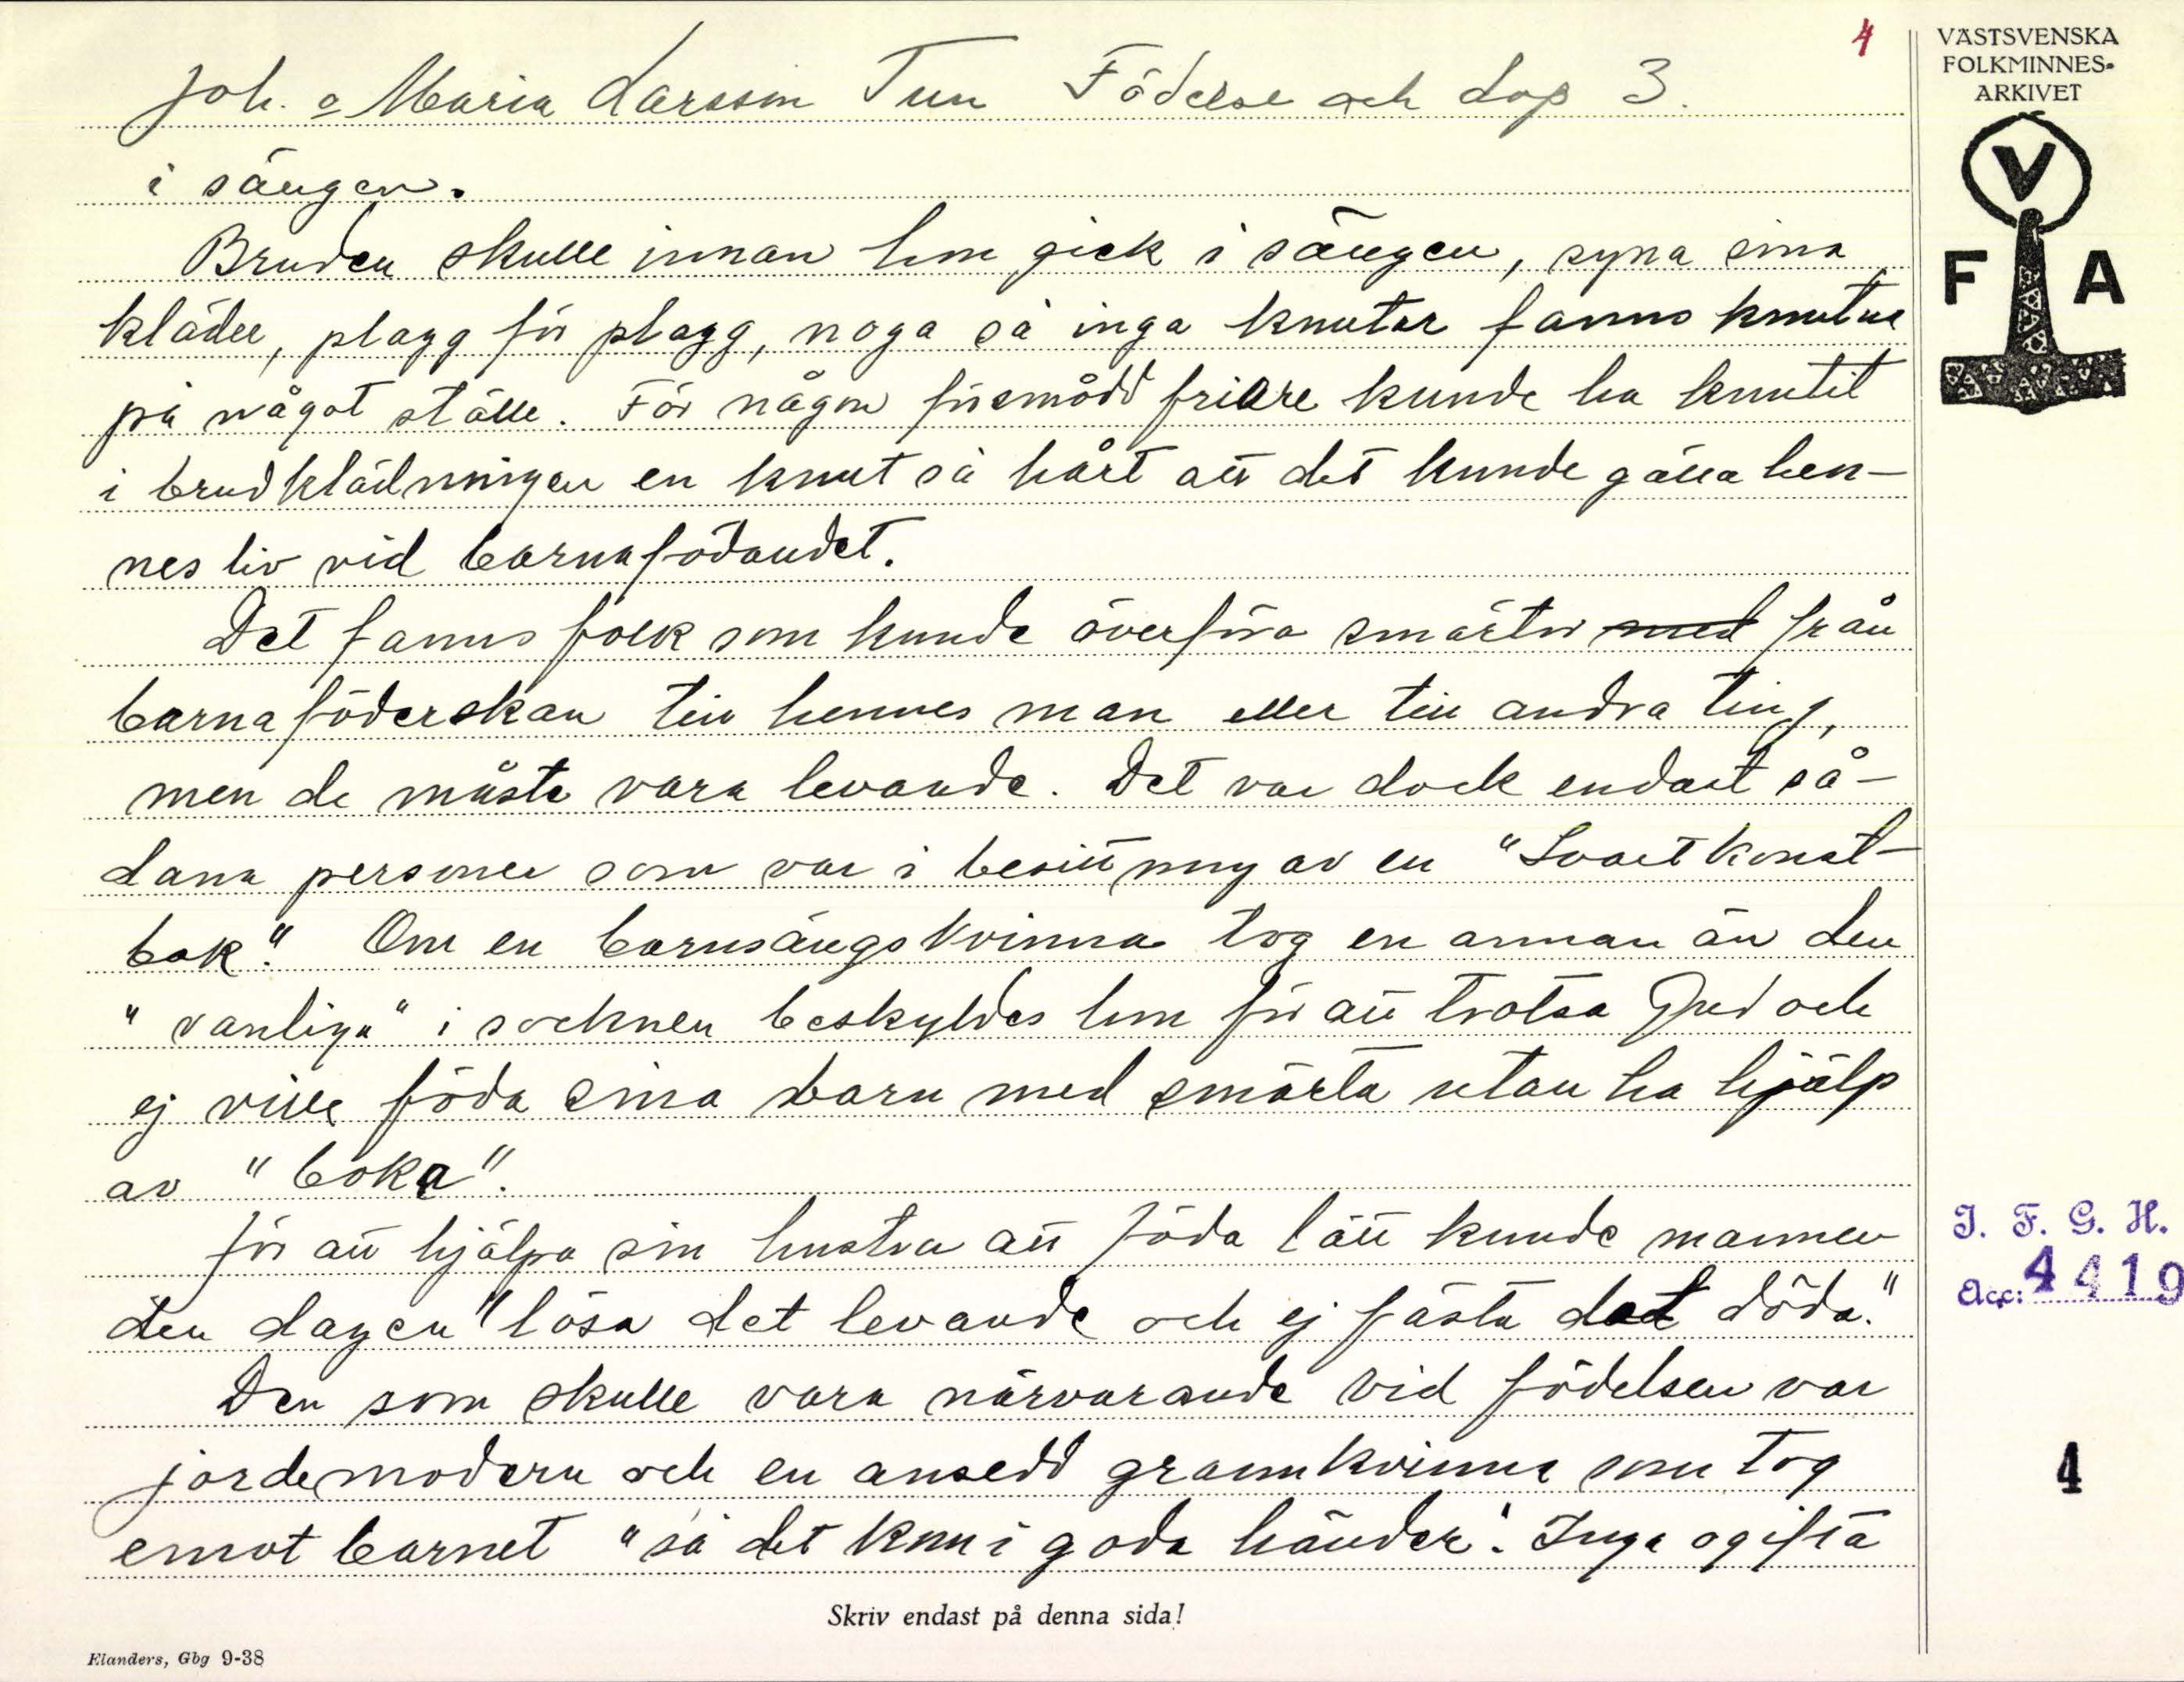 4
VÄSTSVENSKA
FOLKMINNES-
ARKIVET
V
F A
Joh. o Maria Larsson Tun Födelse och dop 3.
i sängen.
Bruden skulle innan hon gick i sängen, syna sina
kläder, plagg för plagg, noga så inga knutar fanns knutna
på något ställe. För någon försmådd friare kunde ha knutit
i brudklädningen en knut så hårt att det kunde gälla hen-
nes liv vid barnafödandet.
Det fanns folk som kunde överföra smärtor med från
barnaföderskan till hennes man eller till andra ting,
men de måste vara levande. Det var dock endast så-
dana personer som var i besittning av en "Svartkonst-
bok". Om en barnsängskvinna tog en annan än den
"vanliga" i socknen beskyldes hon för att trotsa Gud och
ej ville föda sina barn med smärta utan ha hjälp
av "boka".
För att hjälpa sin hustru att föda lätt kunde mannen
den dagen "lösa det levande och ej fästa det döda."
Den som skulle vara närvarande vid födelsen var
jordemodern och en ansedd grannkvinna som tog
emot barnet "så det kom i goda händer". Inga ogifta
I. F. G. H.
Acc: 4419
4
Skriv endast på denna sida!
Elanders, Gbg 9-38